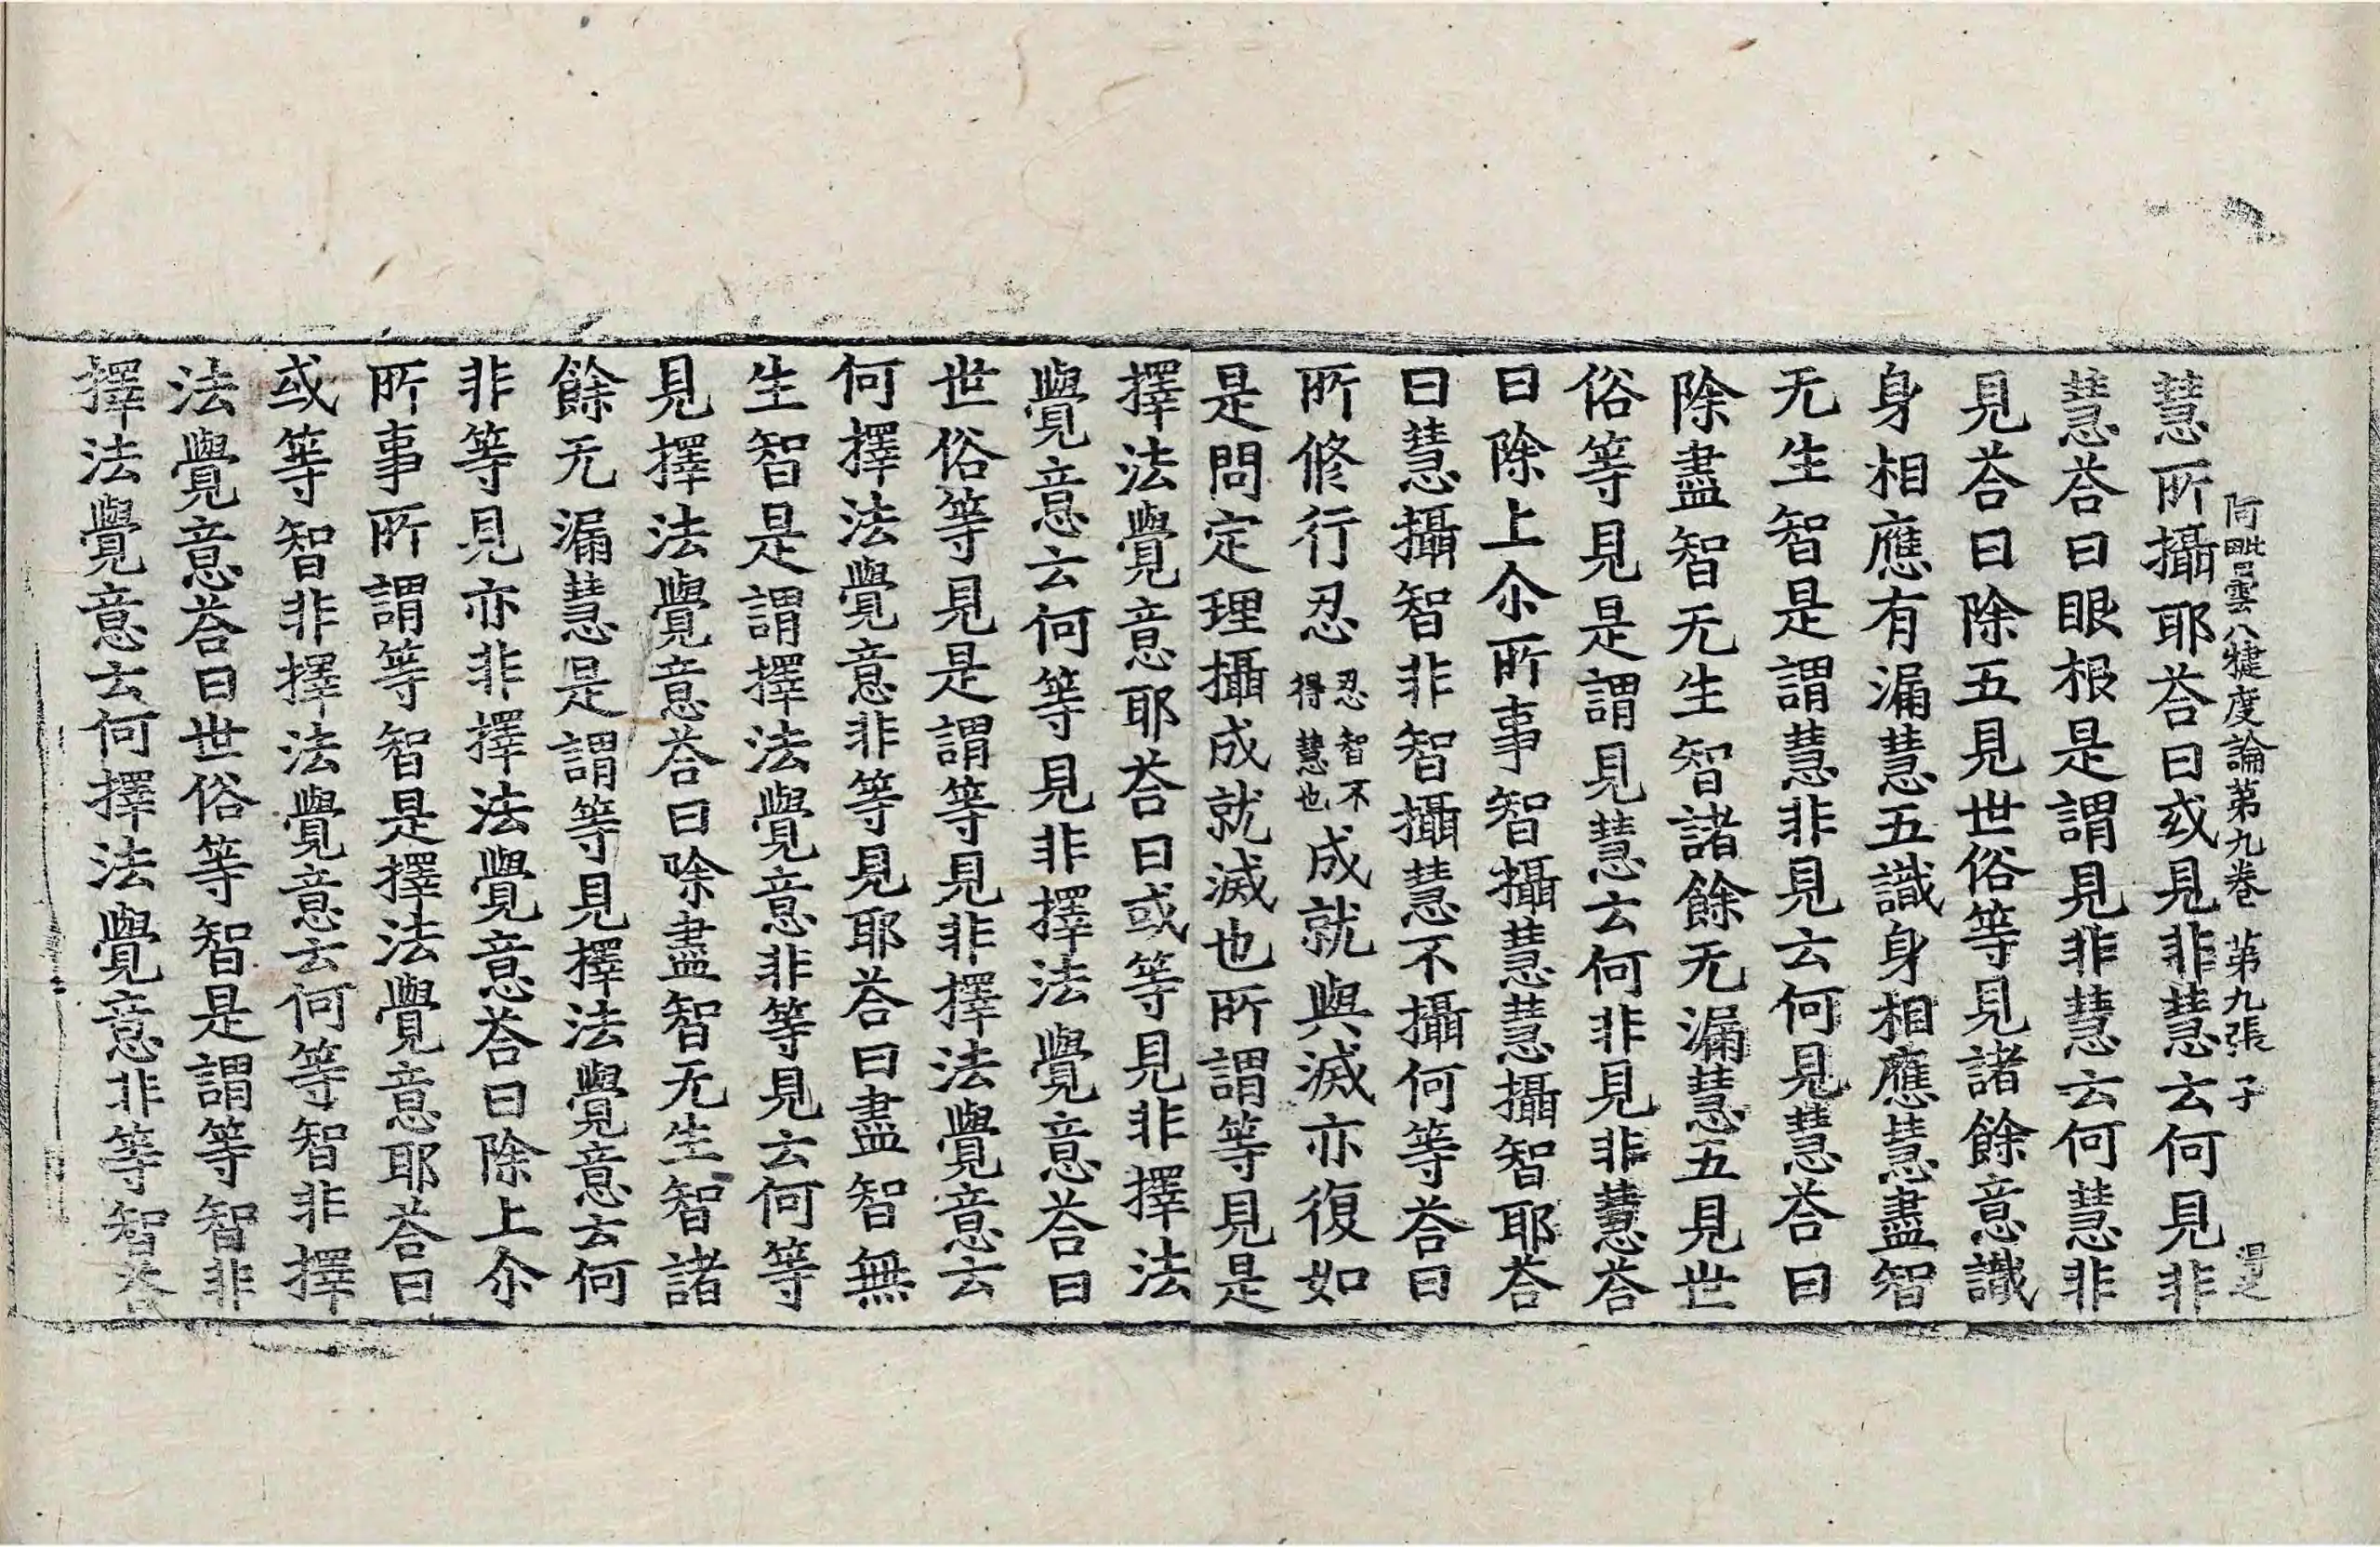 阿毗曇八犍度論第九卷 第九張 子
慧所攝耶荅曰或見非慧云何見非
慧荅曰眼根是謂見非慧云何慧非
見荅曰除五見世俗等見諸餘意識
身相應有漏慧五識身相應慧盡智
无生智是謂慧非見云何見慧荅曰
除盡智无生智諸餘无漏慧五見世
俗等見是謂見慧云何非見非慧荅
曰除上尒所事智攝慧慧攝智耶荅
曰慧攝智非智攝慧不攝何等荅曰
所修行忍忍智不得慧也成就與滅亦復如
是問定理攝成就滅也所謂等見是
擇法覺意耶荅曰或等見非擇法
覺意云何等見非擇法覺意荅曰
世俗等見是謂等見非擇法覺意云
何擇法覺意非等見耶荅曰盡智無
生智是謂擇法覺意非等見云何等
見擇法覺意荅曰除盡智无生智諸
餘无漏慧是謂等見擇法覺意云何
非等見亦非擇法覺意荅曰除上尒
所事所謂等智是擇法覺意耶荅曰
或等智非擇法覺意云何等智非擇
法覺意荅曰世俗等智是謂等智非
擇法覺意云何擇法覺意非等智荅